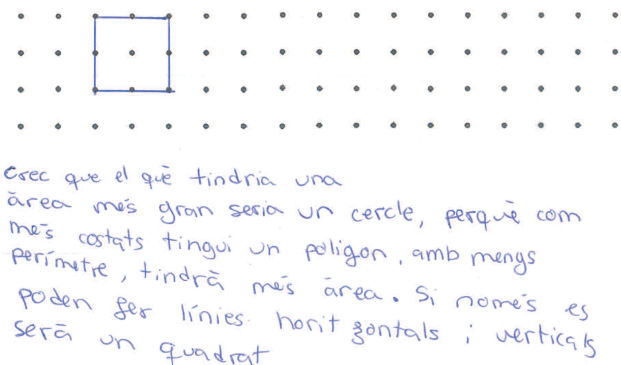 Crec que el què tindria una
àrea més gran seria un cercle, perquè com
més costats tingui un poligon, amb menys
perímetre, tindrà més àrea. Si només es
poden fer línies horitzontals i verticals
serà un quadrat